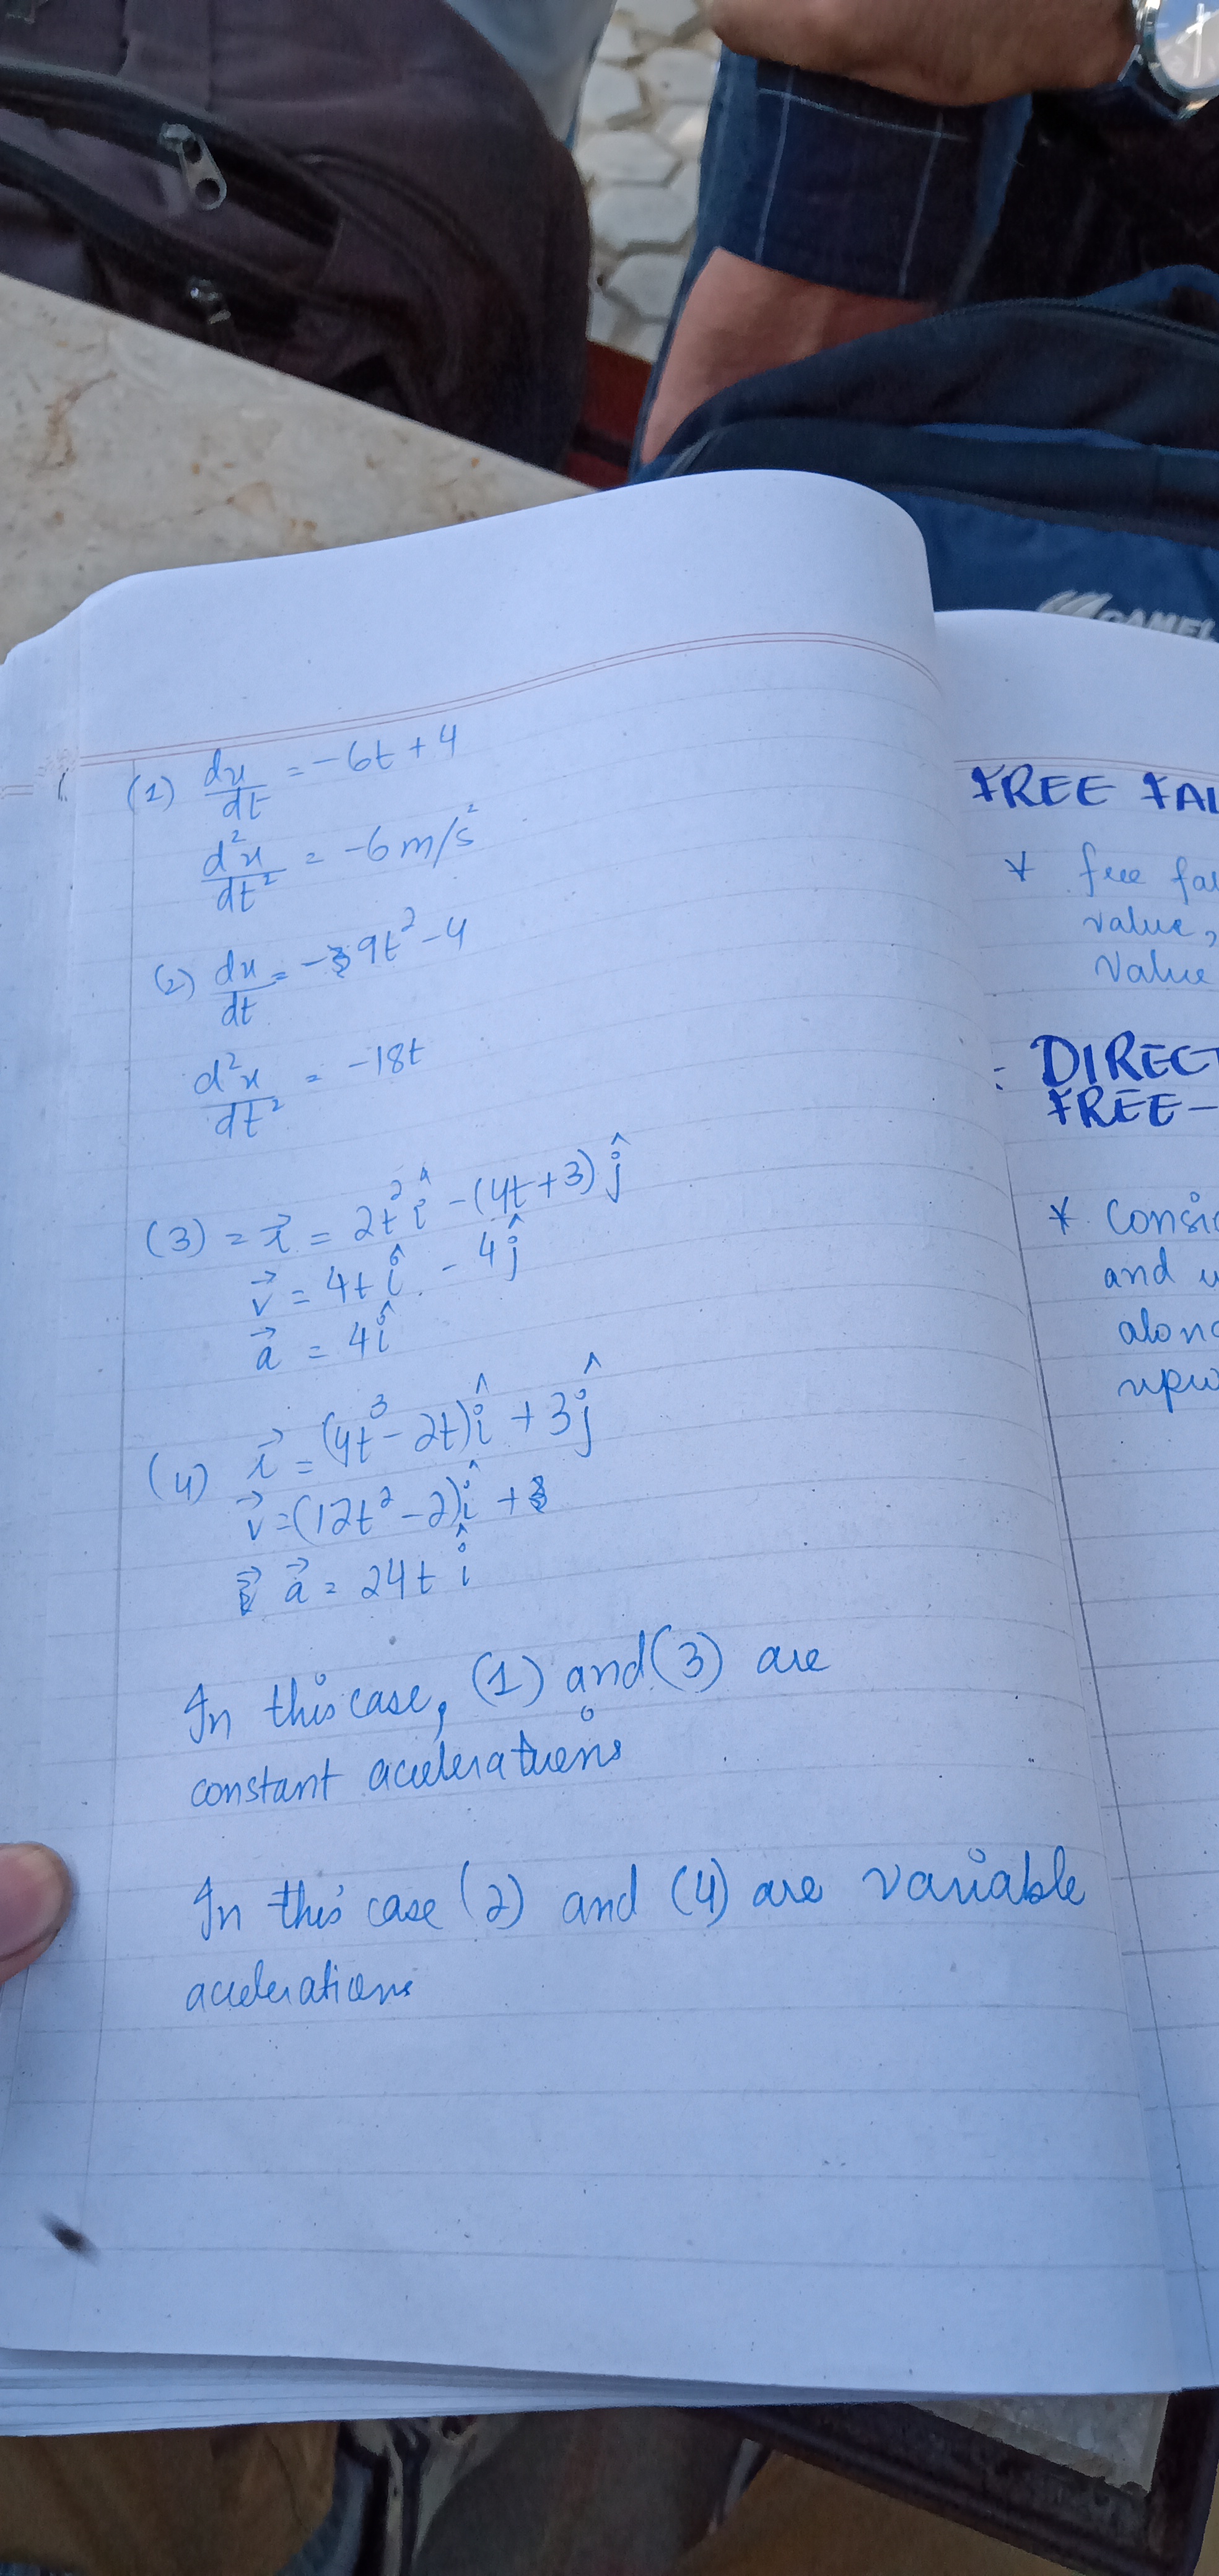 (1) dx/dt = -6t + 4
d²x/dt² = -6 m/s²
(2) dx/dt = - 9t² - 4
d²x/dt² = -18t
(3) = r⃗ = 2t² î - (4t+3) ĵ
v⃗ = 4t î - 4 ĵ
a⃗ = 4 î
(4) r⃗ = (4t³ - 2t) î + 3 ĵ
v⃗ = (12t² - 2) î +
a⃗ = 24t î
In this case, (1) and (3) are
constant
In this case (2) and (4) are variable
accelerations
FREE FAL
* free fal
value,
Value
: DIRECT
FREE-
* Consid
and u
along
upw
CAMEL